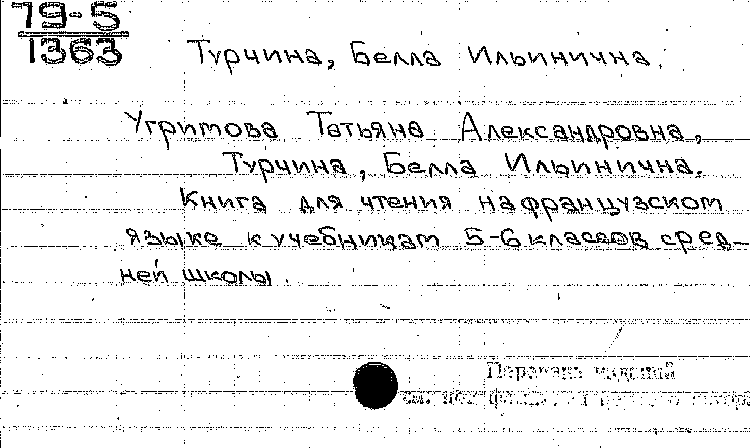 79-5
1363
Турчина, Белла Ильинична.
Угримова Татьяна Александровна,
Турчина, Белла Ильинична.
Книга для чтения на французском
языке к учебникам 5-6 классов сред-
ней школы.
Перечень изданий
см. на